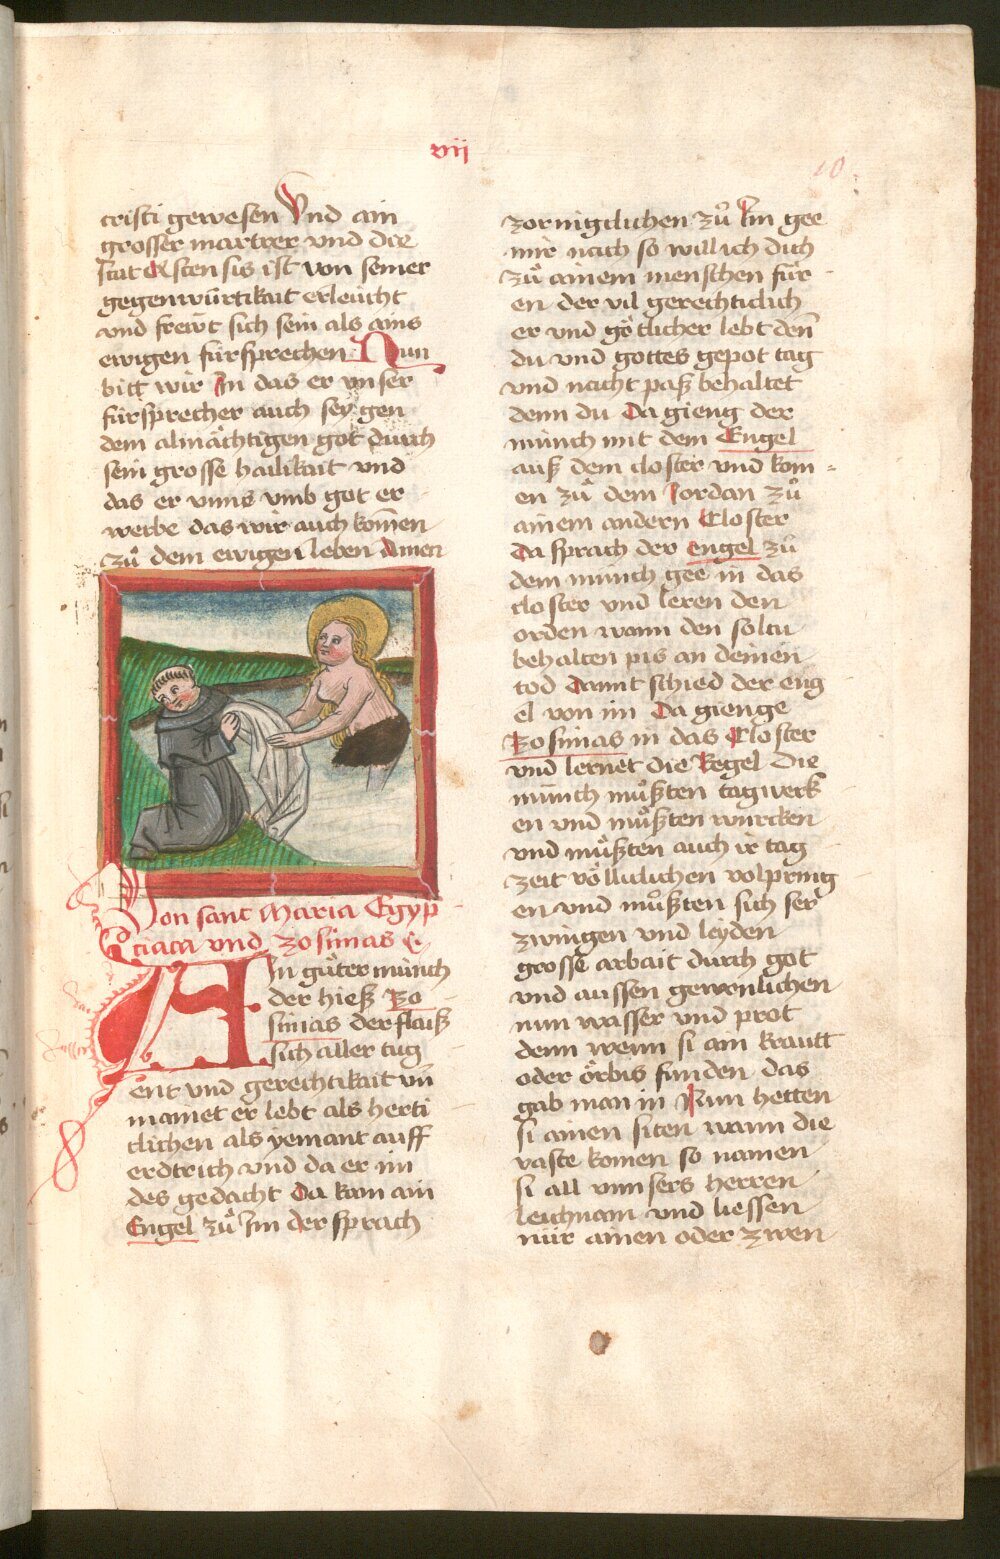 vij
10
cristi gewesen Vnd ain
grosser martrer vnd die
stat Astensis ist von seiner
gegenwürtikait erleücht
vnd frewt sich sein als ains
ewigen fürsprechen Nun
bitt wir In das er vnser
fürsprecher auch sey gen
dem almächtigen got durch
sein grosse hailikait vnd
das er vnns vmb got er
werbe das wir auch komēn
zů dem ewigen leben Amen
Von sant Maria Egyp
tiaca vnd zosimas
Ain gůter münch
der hieß Zo
simas der flaiß
sich aller tug
ent vnd gerechtikait vn̄
mainet er lebt als herti
clichen als yemant auff
erdtrich vnd da er im
des gedacht Da kam ain
Engel zů Im der sprach
zornigclichen zů Im gee
mir nach so will ich dich
zů ainem menschen für
en der vil gerechticlich
er vnd götlicher lebt den̄
du vnd gottes gepot tag
vnd nacht paß behaltet
denn du Da gieng der
münch mit dem Engel
auß dem closter vnd kom
en zů dem Jordan zů
ainem andern Closter
Da sprach der engel zů
dem münch gee in das
closter vnd leren den
orden wann den soltu
behalten pis an deinen
tod Damit schied der eng
el von im Da gienge
Zosimas in das Closter
vnd lernet die Regel Die
münch můßten tagwerk
en vnd můßten würcken
vnd můßten auch ir tag
zeit völliclichen volpring
en vnd můßten sich ser
zwingen vnd leyden
grosse arbait durch got
vnd aussen gewonlichen
nun wasser vnd prot
denn wenn si ain krautt
oder örbis funden das
gab man in Nun hetten
si ainen siten wann die
vaste komen so namen
si all vnnsers herren
leichnam vnd liessen
nür ainen oder zwen